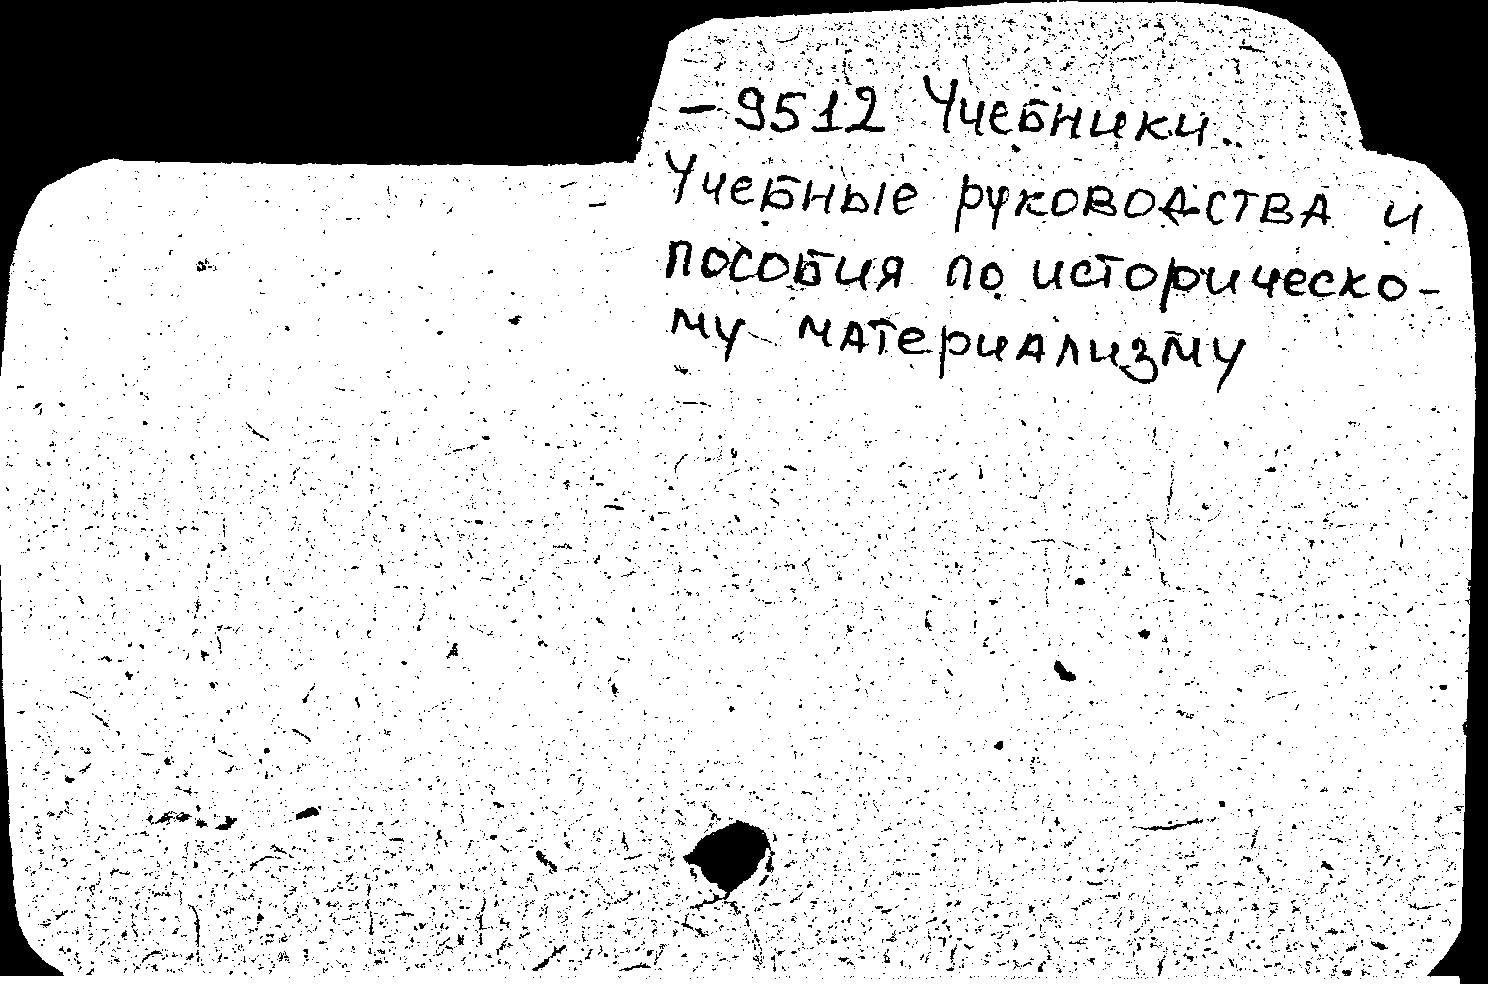 – 9512 Учебники.
Учебные руководства и
пособия по историческо-
му материализму